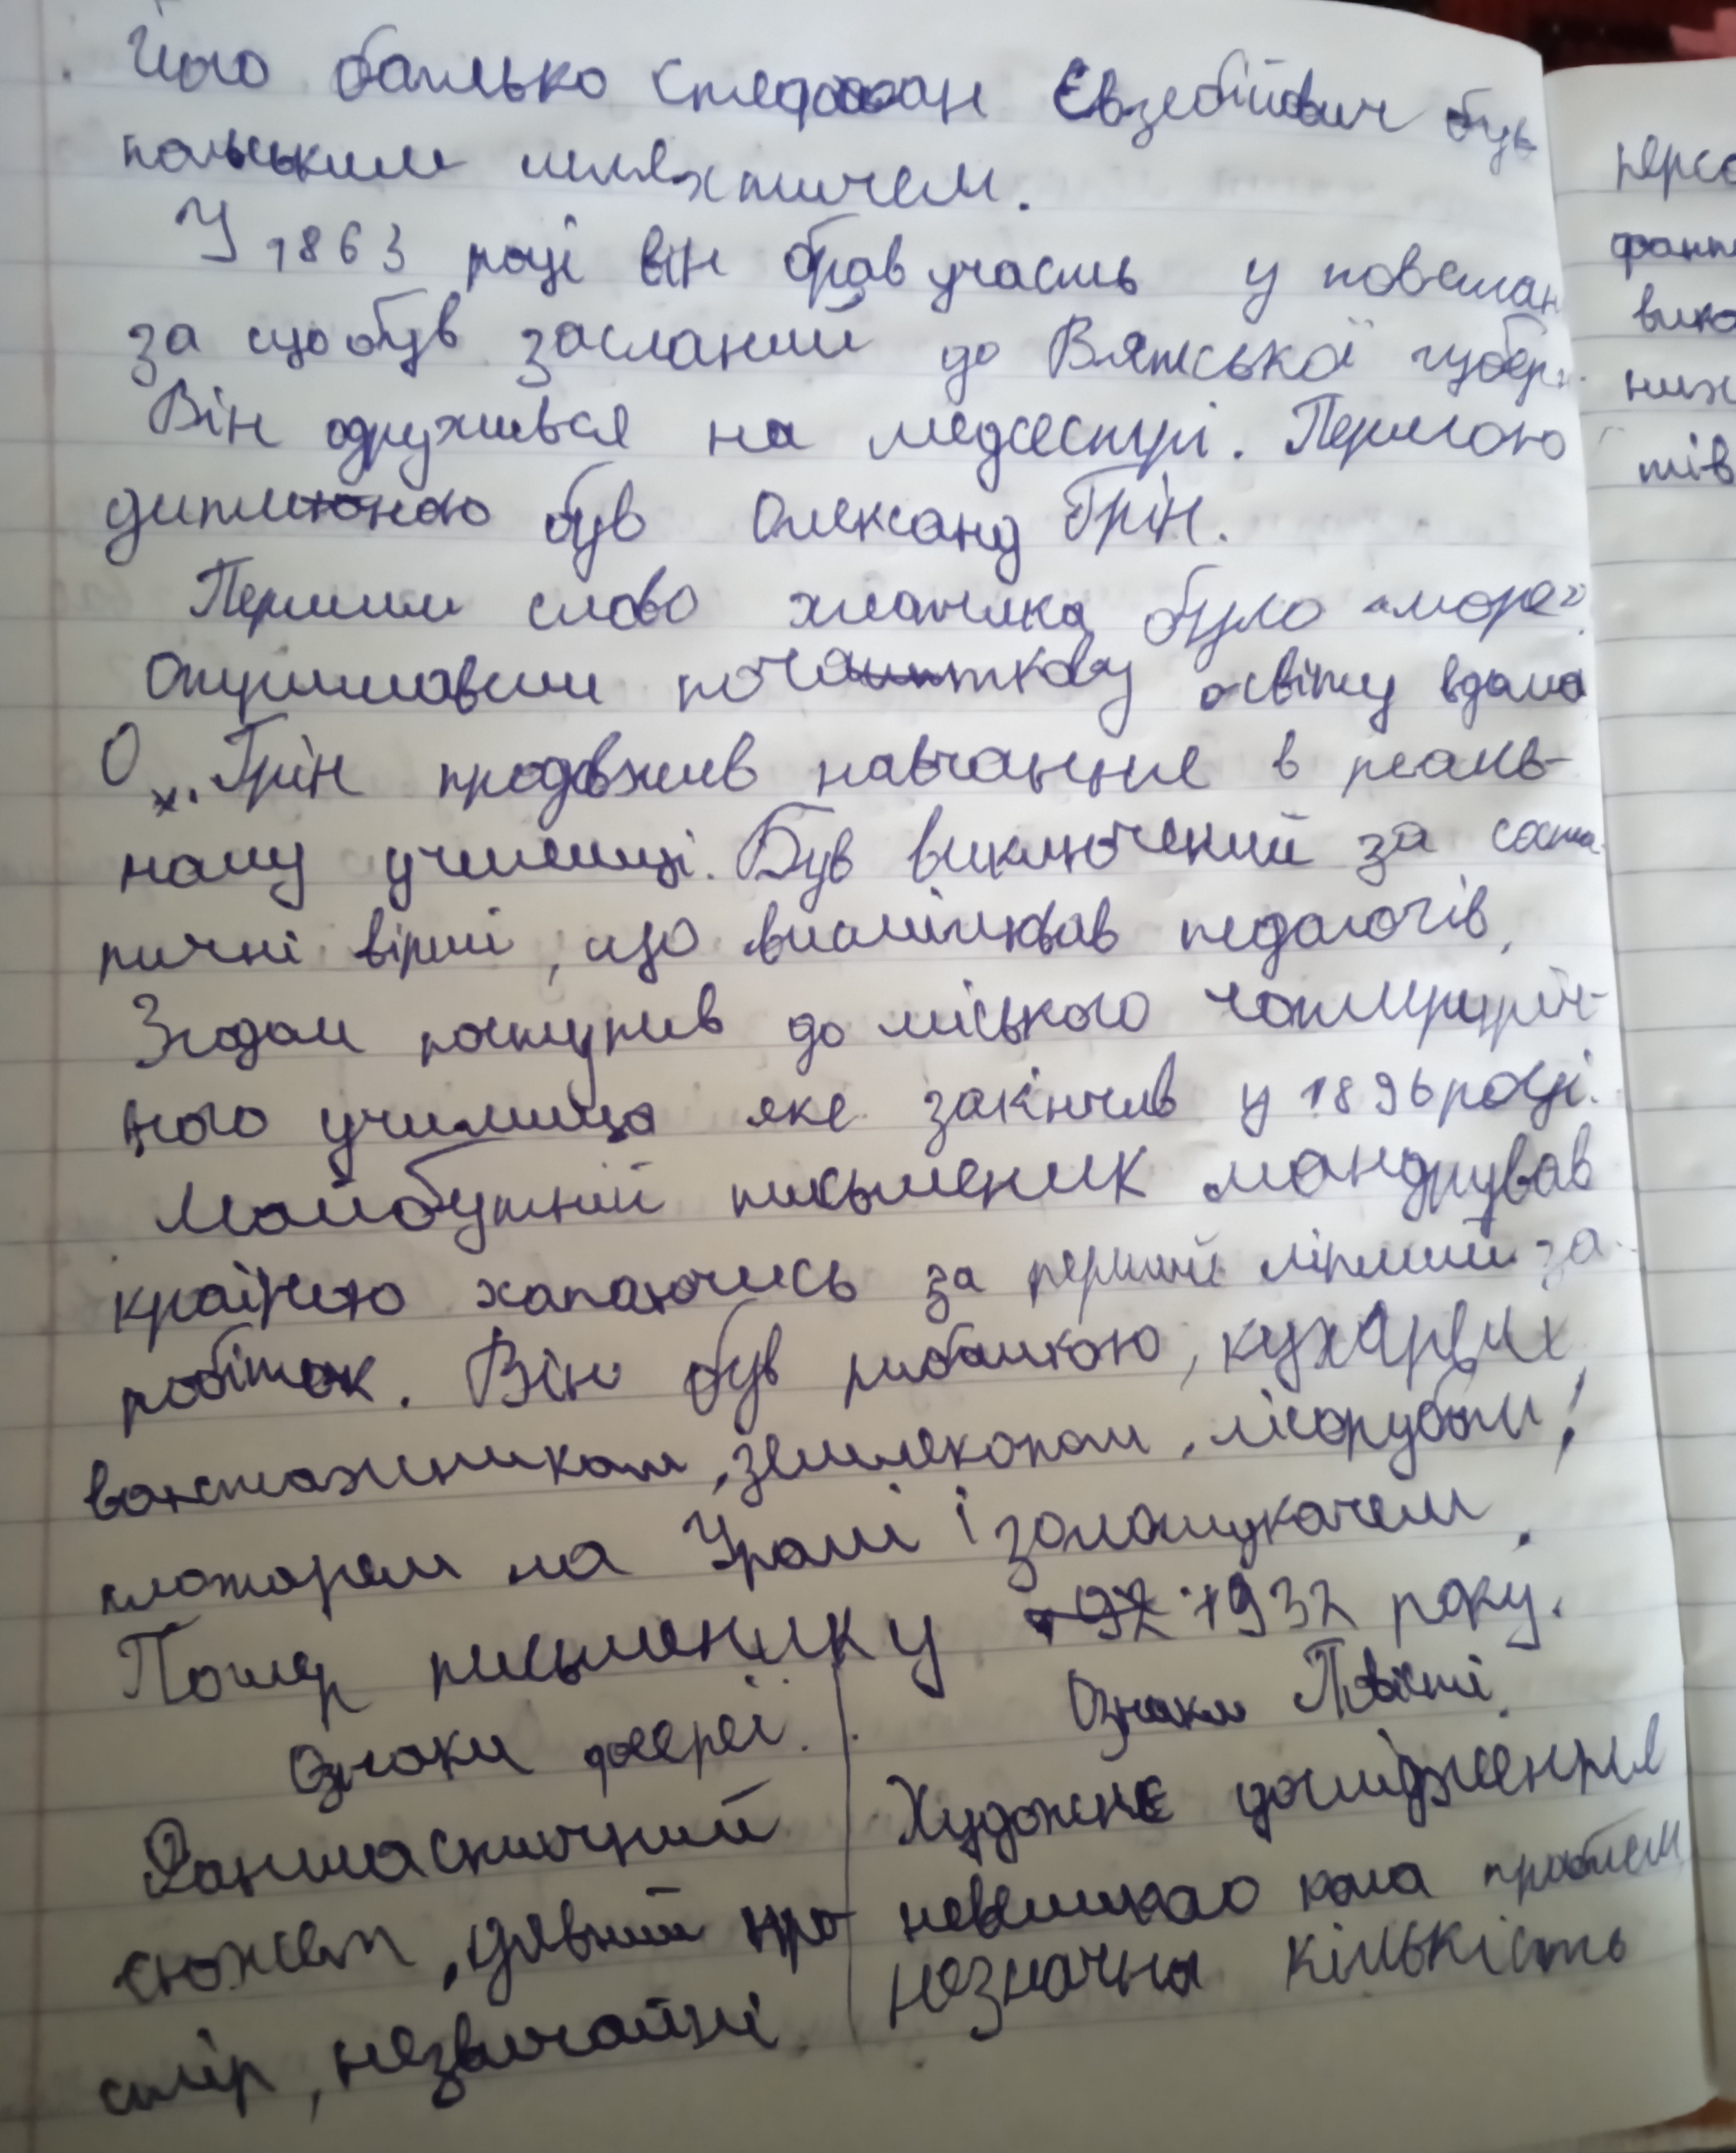 Його батько Стефан Євзебійович був
польським шляхтичем.
У 1863 році він брав участь у повстан
за що був засланий до Вятської губер
Він одружився на медсестрі. Першою
дитиною був Олександ Грін.
Першим слово хлопчика було "море".
Отримавши початкову освіту вдома
О. Грін продовжив навчання в реаль-
ному училищі. Був виключений за сати-
ричні вірші, що висміював педагогів,
Згодом поступив до міського чотириріч-
ного училища яке закінчив у 1896 році.
Майбутній письменник мандрував
країною хапаючись за перший ліпший за-
робіток. Він був рибалкою, кухарем
вантажником, землекопом, лісорубом,
на Уралі і золотшукачем.
Помер письменник у 1932 року.
Ознаки феєрії.
Фантастичний
сюжет, дивний про
стір, незвичайні
Ознаки Повісті
Художнє дослідження
невеликого кола проблем
незначна кількість
перс
фант
вико
них
тів